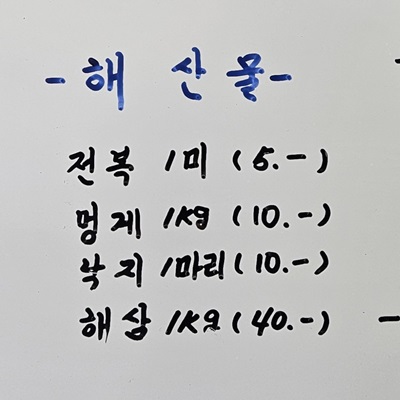 - 해 산 물 -
전복 1미 (5.-)
멍게 1kg (10.-)
낙지 1마리 (10.-)
해삼 1kg (40.-)